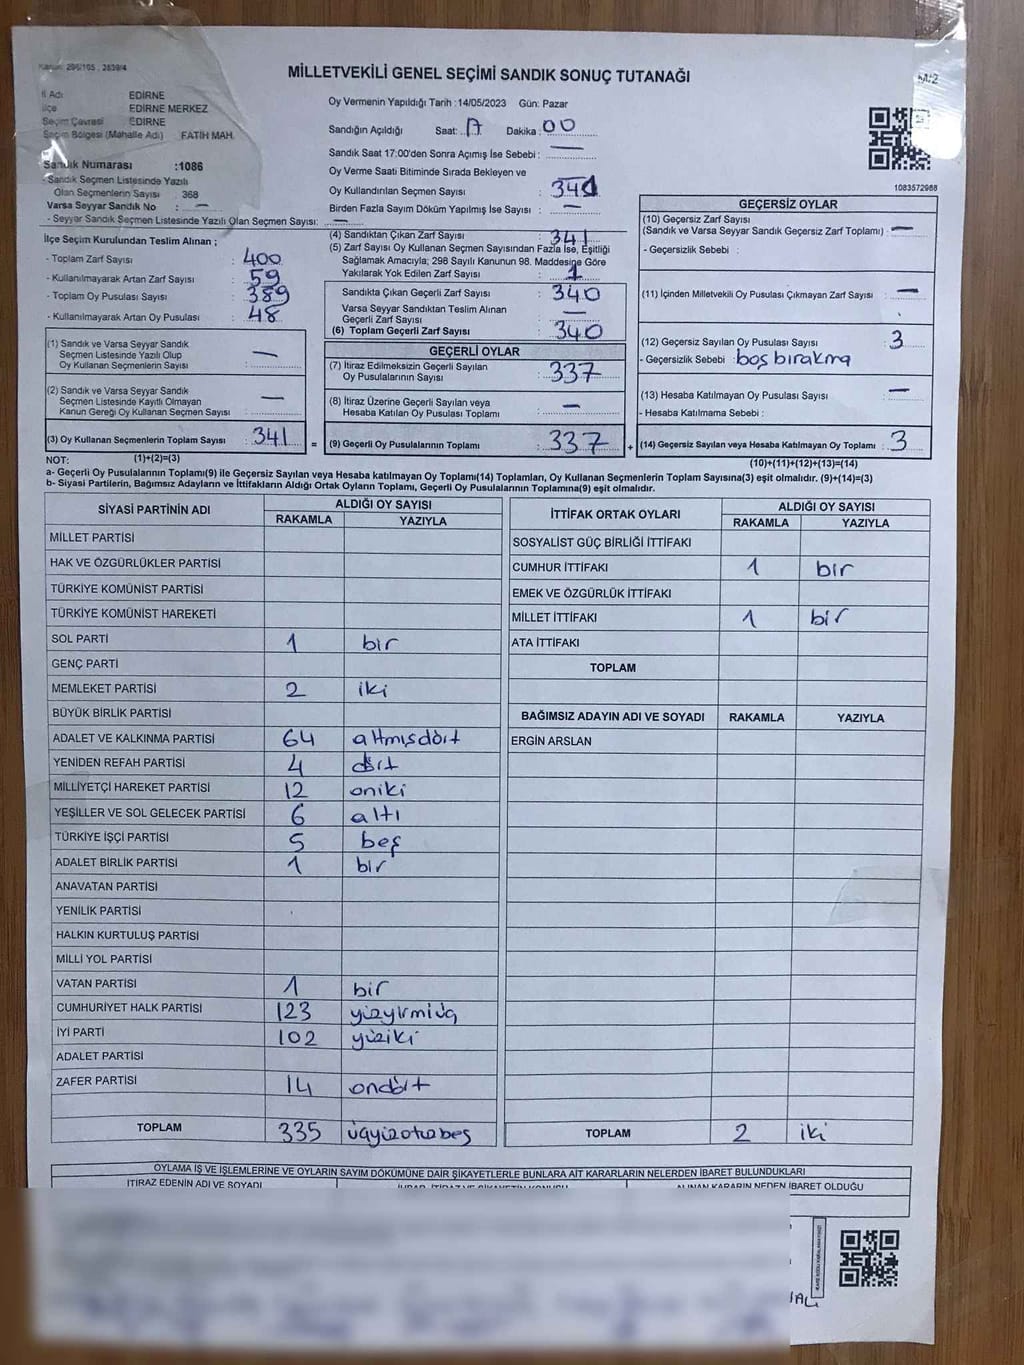 Kanun: 298/105 , 2839/4
MİLLETVEKİLİ GENEL SEÇİMİ SANDIK SONUÇ TUTANAĞI
İl Adı EDİRNE
İlçe EDİRNE MERKEZ
Seçim Çevresi EDİRNE
Seçim Bölgesi (Mahalle Adı) FATİH MAH.
Sandık Numarası :1086
- Sandık Seçmen Listesinde Yazılı
Olan Seçmenlerin Sayısı : 368
Varsa Seyyar Sandık No : —
- Seyyar Sandık Seçmen Listesinde Yazılı Olan Seçmen Sayısı: —
Oy Vermenin Yapıldığı Tarih :14/05/2023 Gün: Pazar
Sandığın Açıldığı Saat: 17 Dakika: 00
Sandık Saat 17:00'den Sonra Açımış İse Sebebi : —
Oy Verme Saati Bitiminde Sırada Bekleyen ve
Oy Kullandırılan Seçmen Sayısı : 341
Birden Fazla Sayım Döküm Yapılmış İse Sayısı : —
1083572988
İlçe Seçim Kurulundan Teslim Alınan ;
- Toplam Zarf Sayısı : 400
- Kullanılmayarak Artan Zarf Sayısı : 59
- Toplam Oy Pusulası Sayısı : 389
- Kullanılmayarak Artan Oy Pusulası : 48
(1) Sandık ve Varsa Seyyar Sandık
Seçmen Listesinde Yazılı Olup
Oy Kullanan Seçmenlerin Sayısı : —
(2) Sandık ve Varsa Seyyar Sandık
Seçmen Listesinde Kayıtlı Olmayan
Kanun Gereği Oy Kullanan Seçmen Sayısı : —
(3) Oy Kullanan Seçmenlerin Toplam Sayısı : 341
(4) Sandıktan Çıkan Zarf Sayısı : 341
(5) Zarf Sayısı Oy Kullanan Seçmen Sayısından Fazla İse, Eşitliği
Sağlamak Amacıyla; 298 Sayılı Kanunun 98. Maddesine Göre
Yakılarak Yok Edilen Zarf Sayısı : 1
Sandıkta Çıkan Geçerli Zarf Sayısı : 340
Varsa Seyyar Sandıktan Teslim Alınan
Geçerli Zarf Sayısı : —
(6) Toplam Geçerli Zarf Sayısı : 340
GEÇERLİ OYLAR
(7) İtiraz Edilmeksizin Geçerli Sayılan
Oy Pusulalarının Sayısı : 337
(8) İtiraz Üzerine Geçerli Sayılan veya
Hesaba Katılan Oy Pusulası Toplamı : —
= (9) Geçerli Oy Pusulalarının Toplamı : 337
GEÇERSİZ OYLAR
(10) Geçersiz Zarf Sayısı
(Sandık ve Varsa Seyyar Sandık Geçersiz Zarf Toplamı) : —
- Geçersizlik Sebebi :
(11) İçinden Milletvekili Oy Pusulası Çıkmayan Zarf Sayısı : —
(12) Geçersiz Sayılan Oy Pusulası Sayısı : 3
- Geçersizlik Sebebi : boş bırakma
(13) Hesaba Katılmayan Oy Pusulası Sayısı : —
- Hesaba Katılmama Sebebi :
+ (14) Geçersiz Sayılan veya Hesaba Katılmayan Oy Toplamı : 3
NOT: (1)+(2)=(3)
(10)+(11)+(12)+(13)=(14)
a- Geçerli Oy Pusulalarının Toplamı(9) ile Geçersiz Sayılan veya Hesaba katılmayan Oy Toplamı(14) Toplamları, Oy Kullanan Seçmenlerin Toplam Sayısına(3) eşit olmalıdır. (9)+(14)=(3)
b- Siyasi Partilerin, Bağımsız Adayların ve İttifakların Aldığı Ortak Oyların Toplamı, Geçerli Oy Pusulalarının Toplamına(9) eşit olmalıdır.
SİYASİ PARTİNİN ADI ALDIĞI OY SAYISI
RAKAMLA YAZIYLA
MİLLET PARTİSİ
HAK VE ÖZGÜRLÜKLER PARTİSİ
TÜRKİYE KOMÜNİST PARTİSİ
TÜRKİYE KOMÜNİST HAREKETİ
SOL PARTİ 1 bir
GENÇ PARTİ
MEMLEKET PARTİSİ 2 iki
BÜYÜK BİRLİK PARTİSİ
ADALET VE KALKINMA PARTİSİ 64 altmışdört
YENİDEN REFAH PARTİSİ 4 dört
MİLLİYETÇİ HAREKET PARTİSİ 12 oniki
YEŞİLLER VE SOL GELECEK PARTİSİ 6 altı
TÜRKİYE İŞÇİ PARTİSİ 5 beş
ADALET BİRLİK PARTİSİ 1 bir
ANAVATAN PARTİSİ
YENİLİK PARTİSİ
HALKIN KURTULUŞ PARTİSİ
MİLLİ YOL PARTİSİ
VATAN PARTİSİ 1 bir
CUMHURİYET HALK PARTİSİ 123 yüzyirmiüç
İYİ PARTİ 102 yüziki
ADALET PARTİSİ
ZAFER PARTİSİ 14 ondört
TOPLAM 335 üçyüzotuzbeş
İTTİFAK ORTAK OYLARI ALDIĞI OY SAYISI
RAKAMLA YAZIYLA
SOSYALİST GÜÇ BİRLİĞİ İTTİFAKI
CUMHUR İTTİFAKI 1 bir
EMEK VE ÖZGÜRLÜK İTTİFAKI
MİLLET İTTİFAKI 1 bir
ATA İTTİFAKI
TOPLAM
BAĞIMSIZ ADAYIN ADI VE SOYADI RAKAMLA YAZIYLA
ERGİN ARSLAN
TOPLAM 2 iki
OYLAMA İŞ VE İŞLEMLERİNE VE OYLARIN SAYIM DÖKÜMÜNE DAİR ŞİKAYETLERLE BUNLARA AİT KARARLARIN NELERDEN İBARET BULUNDUKLARI
İTİRAZ EDENİN ADI VE SOYADI
ALINAN KARARIN NEDEN İBARET OLDUĞU